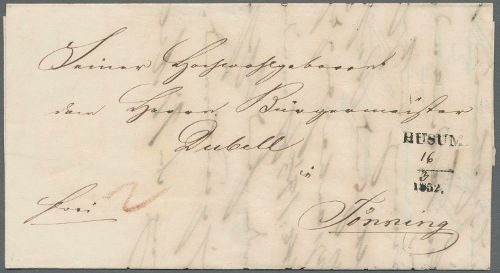 Seiner Hochwohlgeboren
dem Herrn Bürgermeister
Dubell
in
HUSUM.
16
3
1852.
frei
Tönning